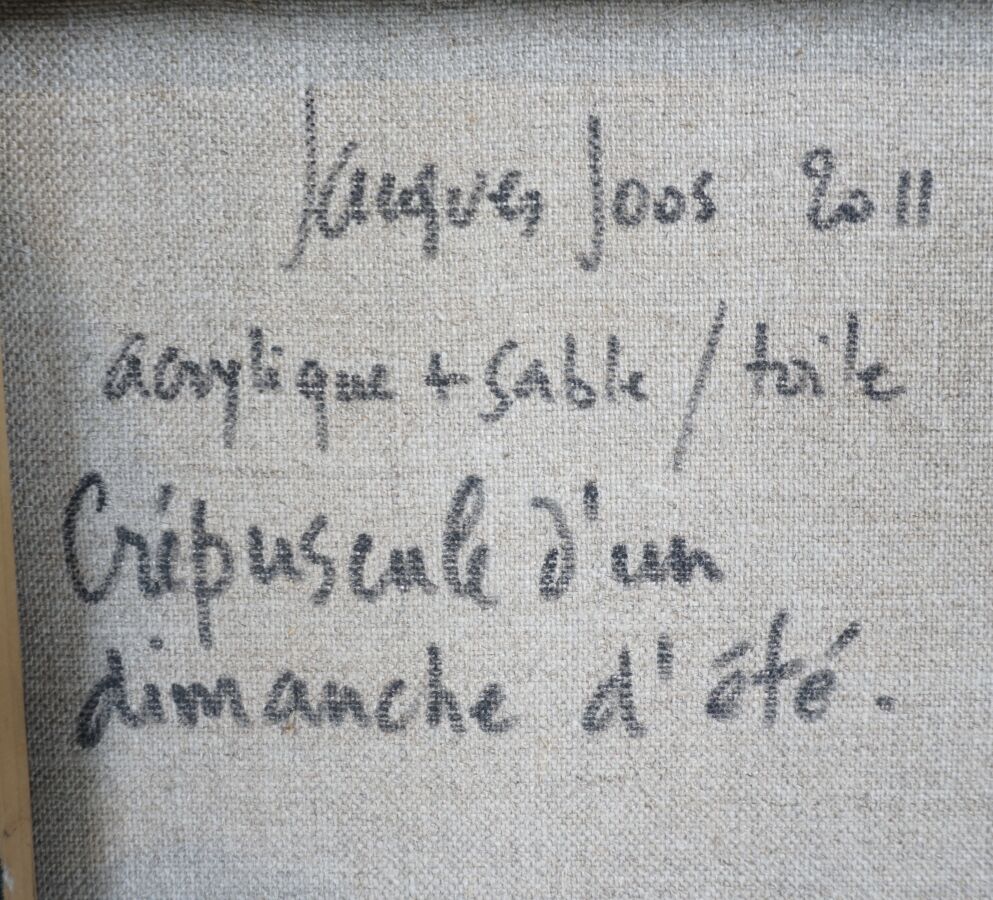 Jacques Joos 2011
acrylique + sable / toile
Crépuscule d'un
dimanche d'été.